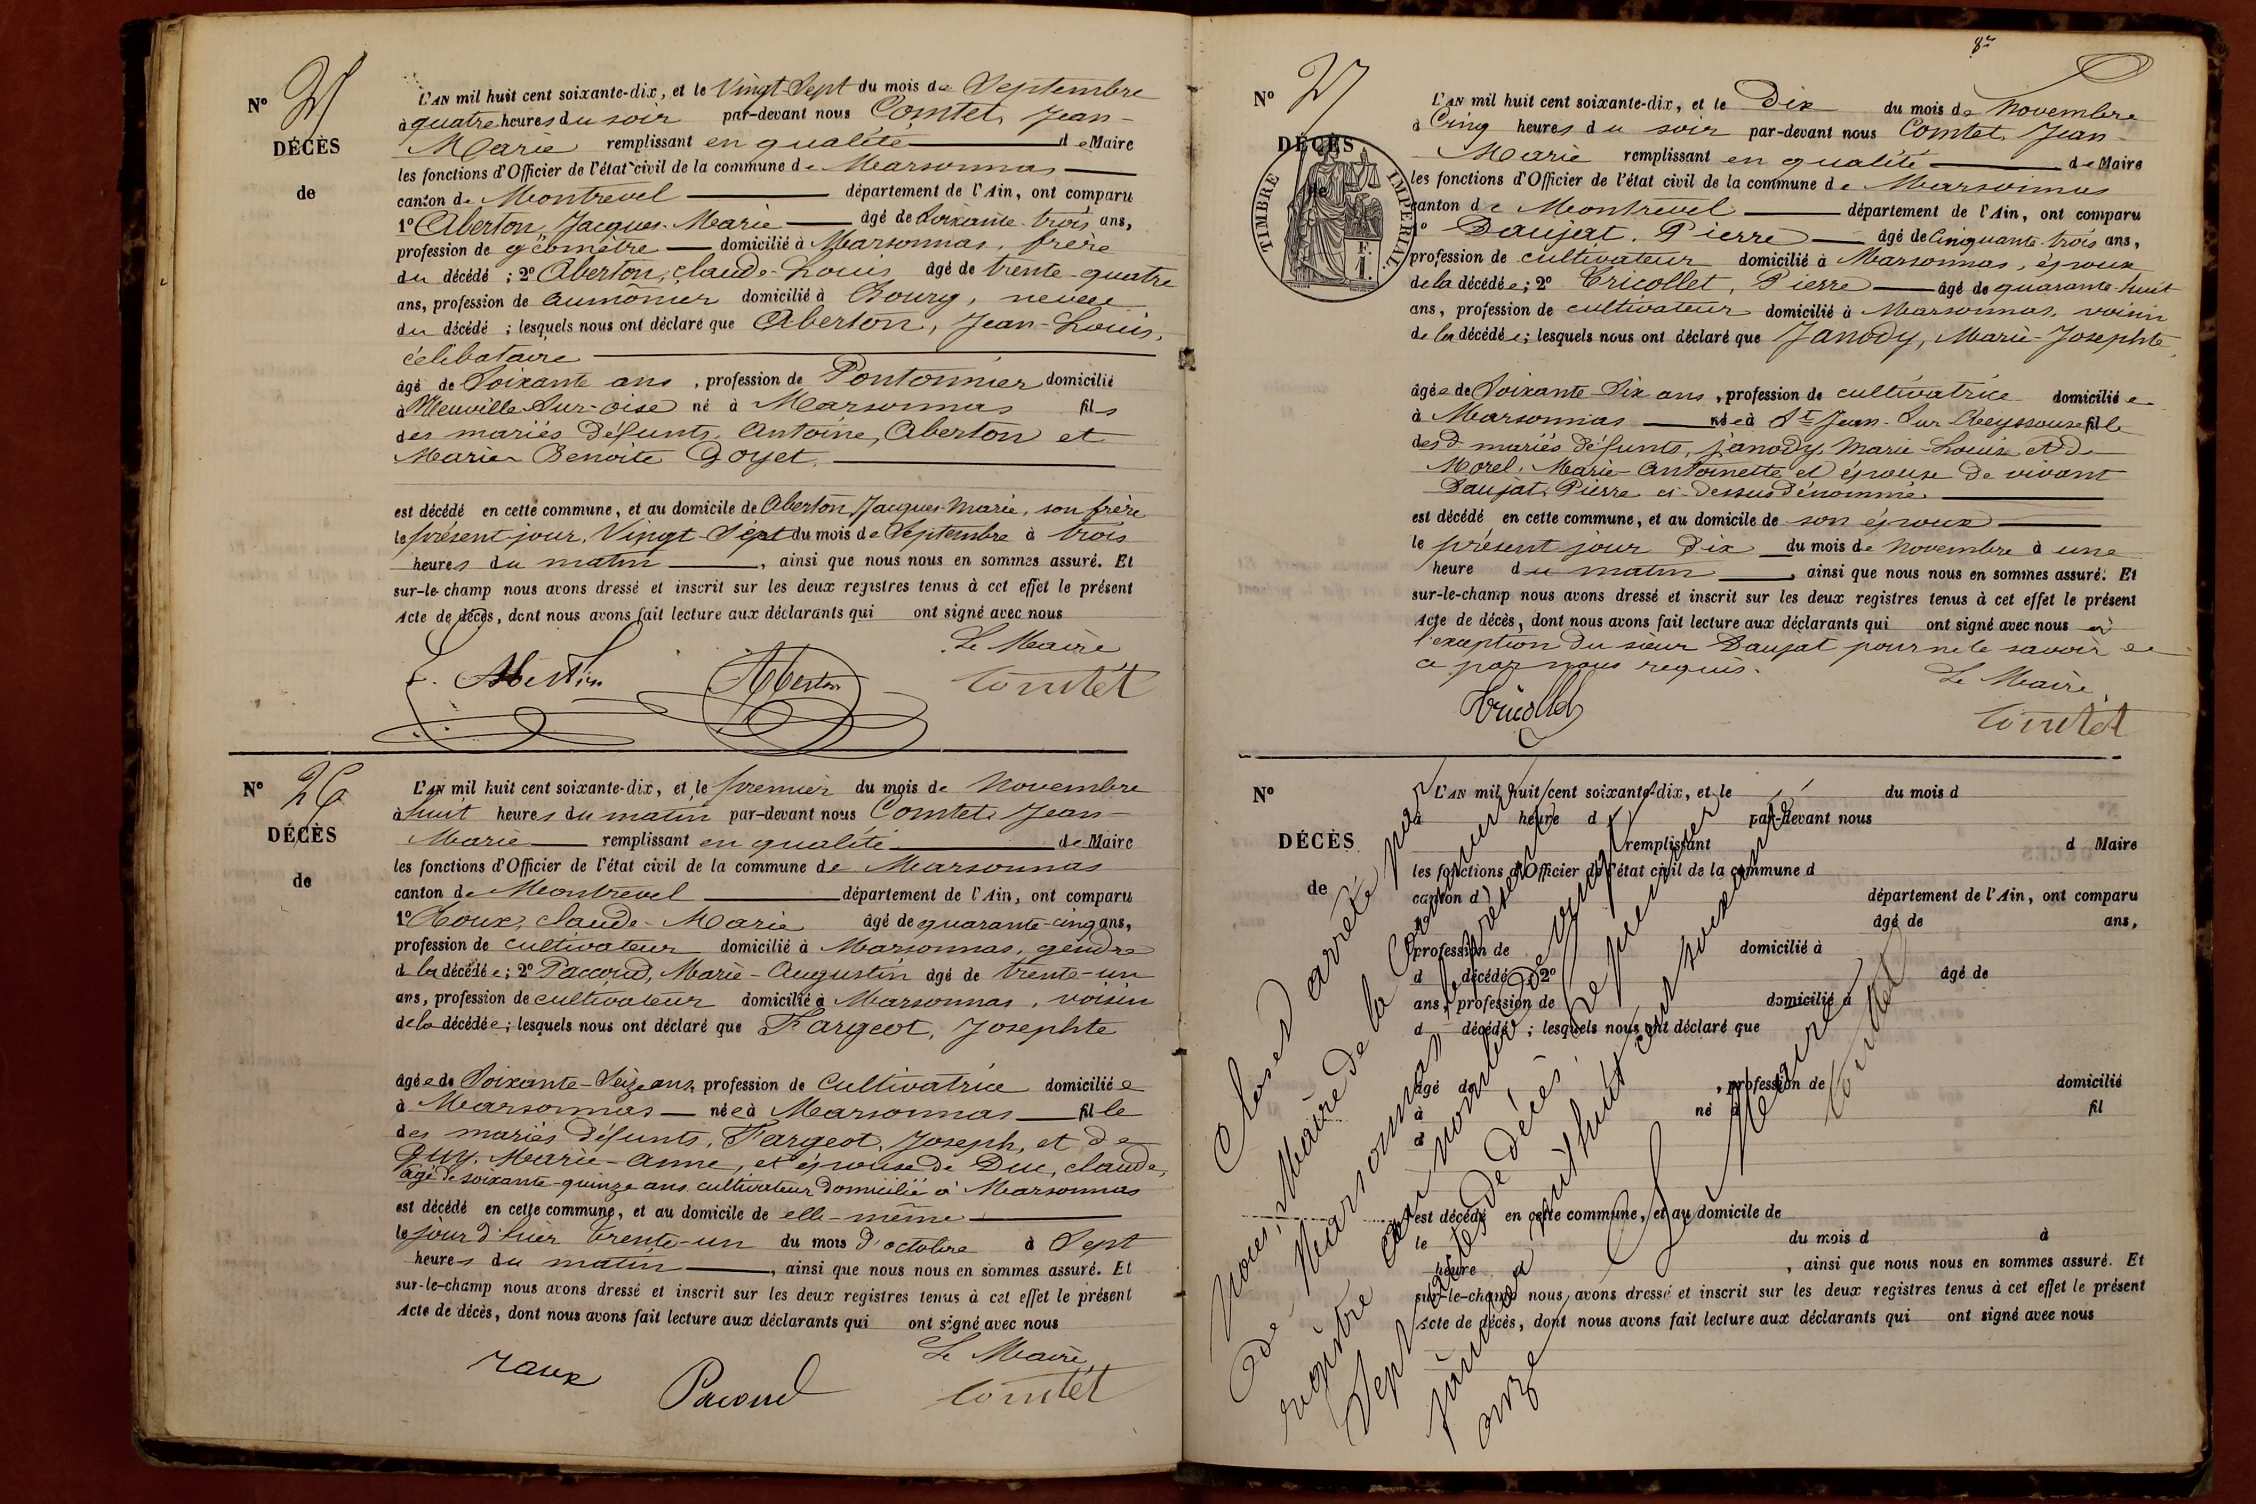 N° 25
DÉCÈS
de
L'AN mil huit cent soixante-dix, et le Vingt-Sept du mois de Septembre
à quatre heures du soir par-devant nous Comtet, Jean-
Marie remplissant en qualité de Maire
les fonctions d'Officier de l'état civil de la commune de Marsonnas
canton de Montrevel département de l'Ain, ont comparu
1° Aberton, Jacques-Marie âgé de Soixante-trois ans,
profession de géomètre domicilié à Marsonnas, frère
du décédé ; 2° Aberton, claude-Louis âgé de trente-quatre
ans, profession de aumônier domicilié à Bourg, neveu
du décédé ; lesquels nous ont déclaré que Aberton, Jean-Louis,
célibataire
âgé de Soixante ans, profession de Pontonnier domicilié
à Neuville Sur-oise né à Marsonnas fils
des mariés défunts, Antoine, Aberton et
Marie Benoite Goyet,
est décédé en cette commune, et au domicile de Aberton, Jacques-Marie, son frère
le présent jour, Vingt-Sept du mois de Septembre à trois
heures du matin, ainsi que nous nous en sommes assuré. Et
sur-le-champ nous avons dressé et inscrit sur les deux registres tenus à cet effet le présent
Acte de décès, dont nous avons fait lecture aux déclarants qui ont signé avec nous
Le Maire
Aberton Comtet
N° 26
DÉCÈS
de
L'AN mil huit cent soixante-dix, et le premier du mois de Novembre
à huit heures du matin par-devant nous Comtet, Jean-
Marie remplissant en qualité de Maire
les fonctions d'Officier de l'état civil de la commune de Marsonnas
canton de Montrevel département de l'Ain, ont comparu
1° Roux, claude-Marie âgé de quarante-cinq ans,
profession de cultivateur domicilié à Marsonnas, gendre
de la décédée ; 2° Paccoud, Marie-Augustin âgé de trente-un
ans, profession de cultivateur domicilié à Marsonnas, voisin
de la décédée ; lesquels nous ont déclaré que Fargeot, Josephte
âgée de Soixante-Seize ans, profession de Cultivatrice domiciliée
à Marsonnas née à Marsonnas fille
des mariés défunts, Fargeot, Joseph, et de
Guy, Marie-Anne, et épouse de Duc, claude,
âgé de soixante-quinze ans cultivateur domicilié à Marsonnas
est décédé en cette commune, et au domicile de elle-même
le jour d'hier trente-un du mois d'octobre à Sept
heures du matin, ainsi que nous nous en sommes assuré. Et
sur-le-champ nous avons dressé et inscrit sur les deux registres tenus à cet effet le présent
Acte de décès, dont nous avons fait lecture aux déclarants qui ont signé avec nous
Le Maire,
roux Pacoud Comtet
N° 27
DÉCÈS
de
TIMBRE IMPÉRIAL
L'AN mil huit cent soixante-dix, et le Dix du mois de Novembre
à Cinq heures du soir par-devant nous Comtet, Jean-
Marie remplissant en qualité de Maire
les fonctions d'Officier de l'état civil de la commune de Marsonnas
canton de Montrevel département de l'Ain, ont comparu
1° Daujat, Pierre âgé de Cinquante-trois ans,
profession de cultivateur domicilié à Marsonnas, époux
de la décédée ; 2° Tricollet, Pierre âgé de quarante-huit
ans, profession de cultivateur domicilié à Marsonnas, voisin
de la décédée ; lesquels nous ont déclaré que Janody, Marie-Josephte,
âgée de Soixante-Dix ans, profession de cultivatrice domiciliée
à Marsonnas née à St Jean-Sur Reyssouse fille
des mariés défunts, Janody, Marie-Louis et de
Morel, Marie-Antoinette et épouse de vivant
Daujat, Pierre ci-dessus dénommé
est décédé en cette commune, et au domicile de son époux
le présent jour Dix du mois de Novembre à une
heure du matin, ainsi que nous nous en sommes assuré. Et
sur-le-champ nous avons dressé et inscrit sur les deux registres tenus à cet effet le présent
Acte de décès, dont nous avons fait lecture aux déclarants qui ont signé avec nous à
l'exception du sieur Daujat pour ne le savoir de
ce par nous requis.
Le Maire,
Tricollet Comtet
N°
DÉCÈS
de
L'AN mil huit cent soixante-dix, et le du mois d
à heure d par-devant nous
remplissant d Maire
les fonctions d'Officier de l'état civil de la commune d
canton d département de l'Ain, ont comparu
âgé de ans,
profession de domicilié à
d décédé ; 2° âgé de
ans, profession de domicilié à
d décédé ; lesquels nous ont déclaré que
âgé de , profession de domicilié
à né à fil
d
est décédé en cette commune, et au domicile de
le du mois d à
heure , ainsi que nous nous en sommes assuré. Et
sur-le-champ nous avons dressé et inscrit sur les deux registres tenus à cet effet le présent
Acte de décès, dont nous avons fait lecture aux déclarants qui ont signé avec nous
Clos et arrêté par
Nous, Maire de la Commune
de Marsonnas le présent
registre au nombre de vingt
Sept actes de décès. Le premier
janvier mil huit cent soixante
onze
Le Maire
Comtet